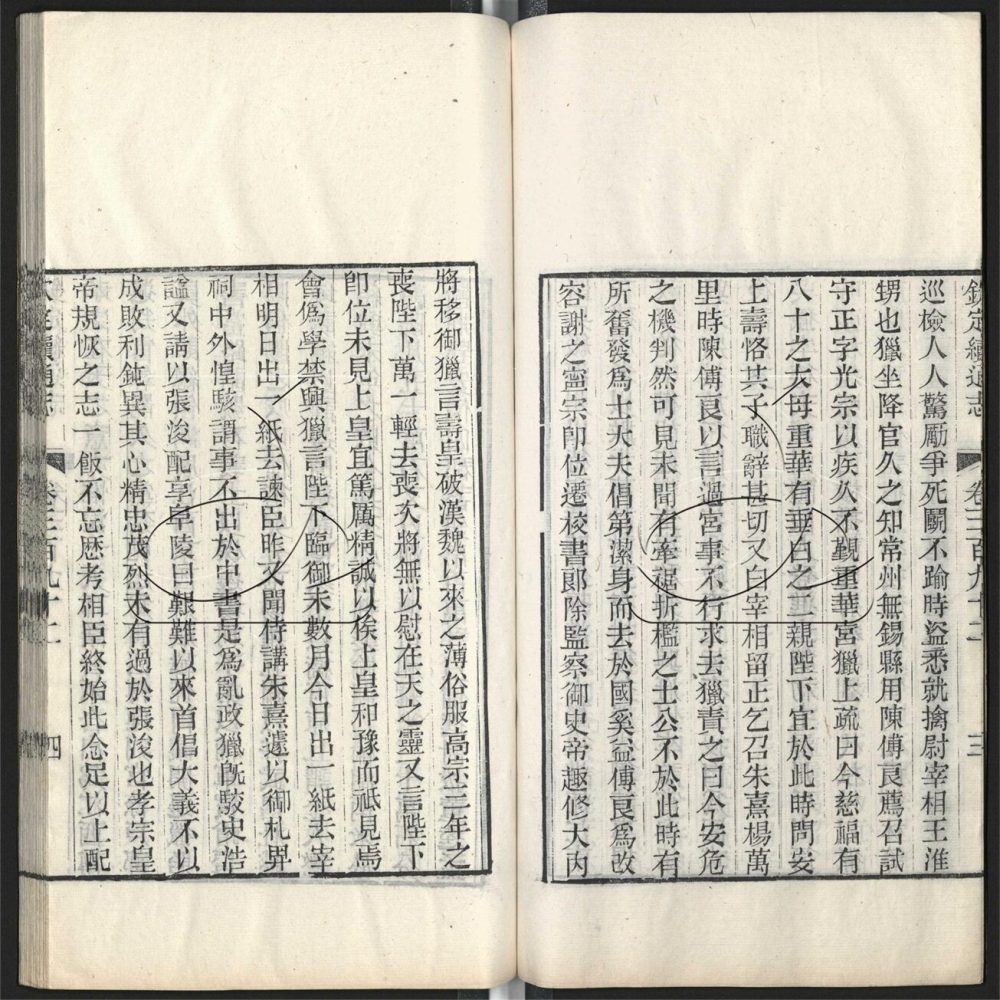 欽定續通志 卷三百九十二 三
巡檢人人驚勵爭死鬭不踰時盜悉就擒尉宰相王淮
甥也獵坐降官久之知常州無錫縣用陳傅良薦召試
守正字光宗以疾久不覲重華宮獵上疏曰今慈福有
八十之大母重華有垂白之二親陛下宜於此時問安
上壽恪共子職辭甚切又白宰相留正乞召朱熹楊萬
里時陳傅良以言過宮事不行求去獵責之曰今安危
之機判然可見未聞有牽裾折檻之士公不於此時有
所奮發爲士大夫倡第潔身而去於國奚益傅良爲改
容謝之寧宗卽位遷校書郞除監察御史帝趣修大內
將移御獵言壽皇破漢魏以來之薄俗服高宗三年之
喪陛下萬一輕去喪次將無以慰在天之靈又言陛下
卽位未見上皇宜篤厲精誠以俟上皇和豫而祇見焉
會僞學禁興獵言陛下臨御未數月今日出一紙去宰
相明日出一紙去諫臣昨又聞侍講朱熹遽以御札畀
祠中外惶駭謂事不出於中書是爲亂政獵旣駮史浩
諡又請以張浚配享阜陵曰艱難以來首倡大義不以
成敗利鈍異其心精忠茂烈未有過於張浚也孝宗皇
帝規恢之志一飯不忘歷考相臣終始此念足以上配
卷三百九十二 四